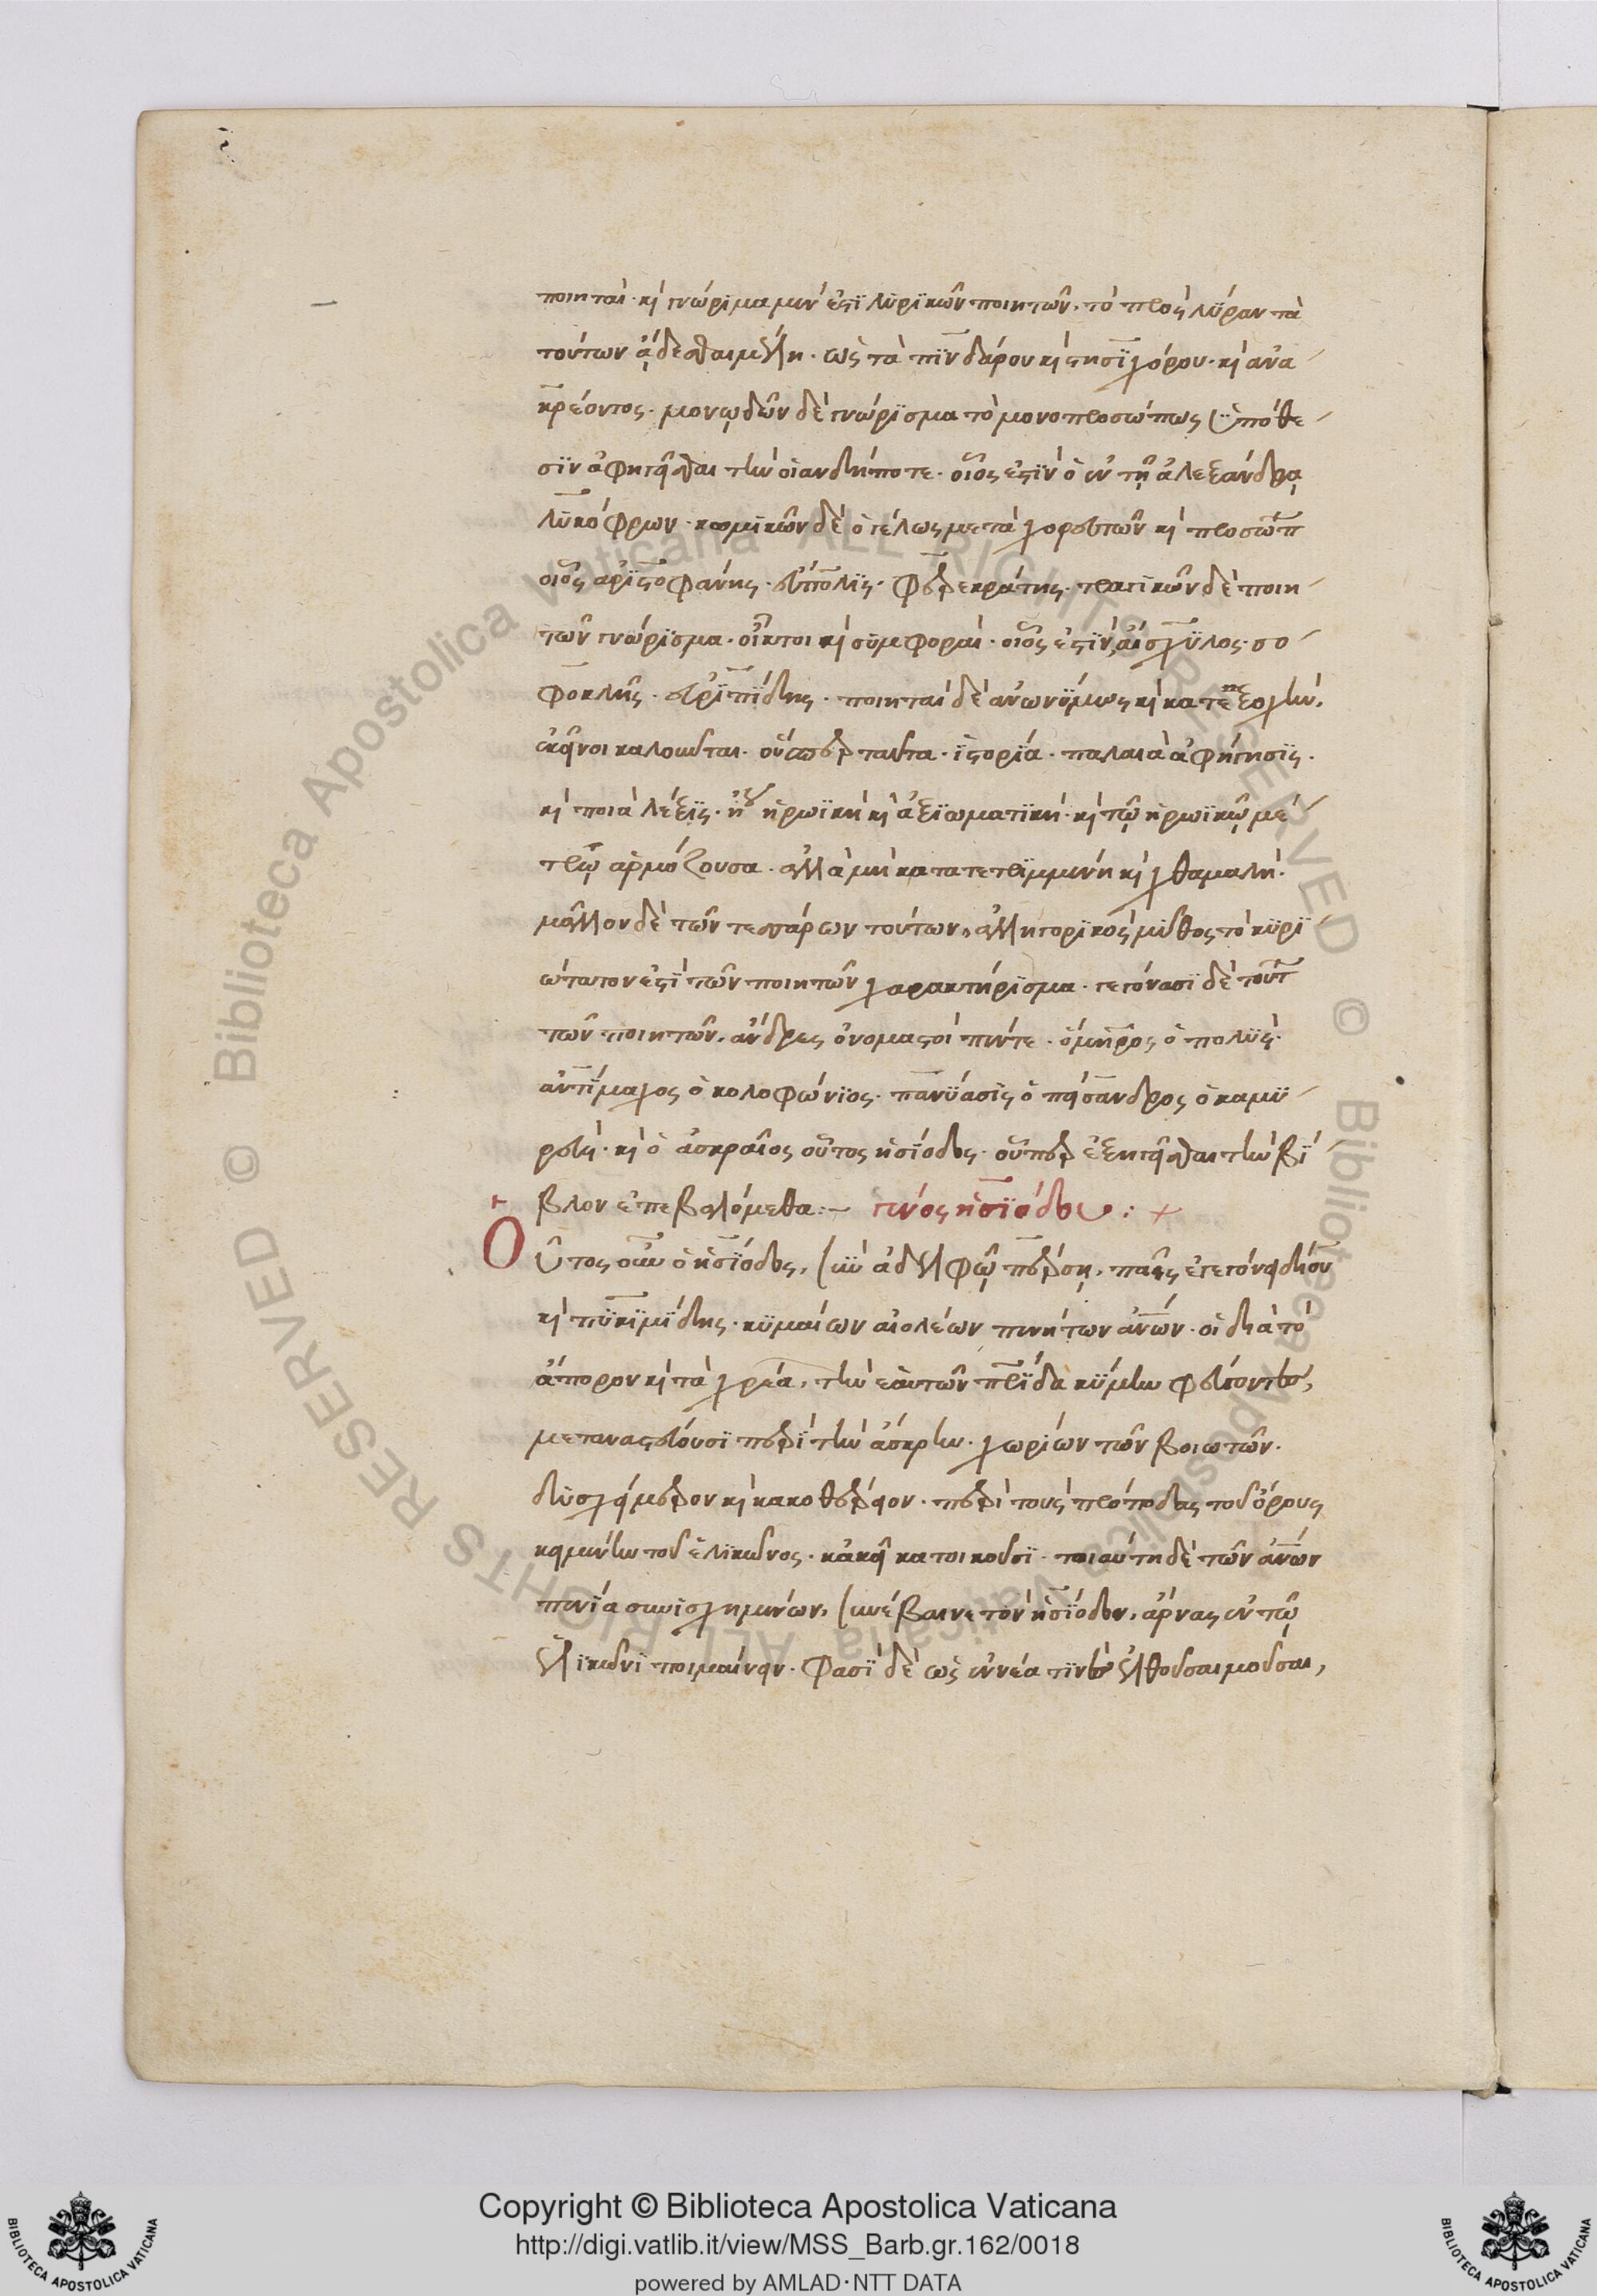 ποιηταί· καὶ γνώρϊμα μὲν ἐστϊ λϋρϊκῶν ποιητῶν, τὸ πρὸς λϋραν τὰ
τούτων ᾄδεσθαι μέλη· ὡς τὰ πϊνδάρου καὶ στησϊχόρου· καὶ ἀνα
κρέοντος· μονῳδῶν δὲ γνώρϊσμα τὸ μονοπροσώπως ϋπόθε
σϊν ἀφηγεῖσθαι τὴν οἱανδήποτε· οἷος ἐστϊν ὁ ἐν τῇ ἀλεξάνδρᾳ
λϋκόφρων· κωμϊκῶν δὲ ὁ γέλως μετὰ χορευτῶν καὶ προσώπ
οἷος ἀρϊστοφάνης· εὔπολϊς· φερεκράτης· τραγϊκῶν δὲ ποιη
τῶν γνώρϊσμα· οἶκτοι καὶ συμφοραὶ· οἷος ἐστϊν, αἰσχϋλος· σο
φοκλῆς· εὐρϊπϊδης· ποιηταὶ δὲ ἀνωνϋμως καὶ κατ' ἐξοχὴν,
ἐκεῖνοι καλοῦνται· οὕσπερ ταῦτα· ἱστορία· παλαιὰ ἀφήγησϊς·
καὶ ποιὰ λέξϊς· ἡρωϊκὴ καὶ ἀξϊωματϊκή· καὶ τῷ ἡρωϊκῷ μέ
τρῳ ἁρμόζουσα· ἀλλὰ μὴ κατατετρϊμμένη καὶ χθαμαλή·
μᾶλλον δὲ τῶν τεσσάρων τούτων, ἀλληγορϊκὸς μῦθος τὸ κϋρϊ
ώτατον ἐστὶ τῶν ποιητῶν χαρακτήρϊσμα· γεγόνασϊ δὲ τούτ
τῶν ποιητῶν, ἄνδρες ὀνομαστοὶ πέντε· ὅμηρος ὁ πολϋς·
ἀντίμαχος ὁ κολοφώνϊος· πανϋασϊς ὁ πείσανδρος ὁ καμϋ
ρεὺς· καὶ ὁ ἀσκραῖος οὗτος ἡσίοδος· οὗπερ ἐξηγεῖσθαι τὴν βϊ
βλον ἐπεβαλόμεθα:– γένος ἡσϊόδου: +
Οὗτος οὖν ὁ ἡσϊοδος, σὺν ἀδελφῷ πέρσῃ, παῖς ἐγεγόνει δίου
καὶ πϋκϊμϊδης· κϋμαίων αἰολέων πενήτων ἀνων· οἳ διὰ τὸ
ἄπορον καὶ τὰ χρέα, τὴν ἑαυτῶν πρϊδα κϋμην φεύγοντες,
μεταναστεύουσϊ περὶ τὴν ἄσκρην· χωρίων τῶν βοιωτῶν·
δυσχείμερον καὶ κακοθέρειον· περὶ τοὺς πρόποδας τοῦ ὄρους
κειμένην τοῦ ἑλϊκῶνος· κἀκεῖ κατοικοῦσϊ· τοιαύτη δὲ τῶν ἀνων
πενϊα συνισχημένων, συνέβαινε τὸν ἡσϊοδον, ἄρνας ἐν τῷ
ἑλϊκῶνϊ ποιμαίνειν· φασϊ δὲ ὡς ἐννέα τϊνὲς ἐλθοῦσαι μοῦσαι,
Copyright © Biblioteca Apostolica Vaticana
http://digi.vatlib.it/view/MSS_Barb.gr.162/0018
powered by AMLAD·NTT DATA